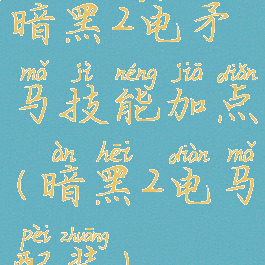 暗黑2电矛
mǎ jì néng jiā diǎn
马技能加点
àn hēi diàn mǎ
(暗黑2电马
pèi zhuāng
配装)